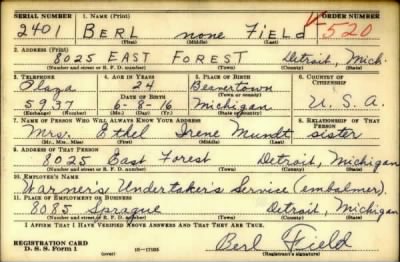 SERIAL NUMBER 1. NAME (Print) ORDER NUMBER
2401 BERL none FIELD V520
(First) (Middle) (Last)
2. ADDRESS (Print)
8025 EAST FOREST Detroit, Mich.
(Number and street or R. F. D. number) (Town) (County) (State)
3. TELEPHONE 4. AGE IN YEARS 5. PLACE OF BIRTH 6. COUNTRY OF CITIZENSHIP
Plaza 24 Beavertown
(Town or county)
5937 6-8-16 Michigan U.S.A.
(Exchange) (Number) (Mo.) (Day) (Yr.) (State or country)
7. NAME OF PERSON WHO WILL ALWAYS KNOW YOUR ADDRESS 8. RELATIONSHIP OF THAT PERSON
Mrs. Ethel Irene Mundt sister
(Mr., Mrs., Miss) (First) (Middle) (Last)
9. ADDRESS OF THAT PERSON
8025 East Forest Detroit, Michigan
(Number and street or R. F. D. number) (Town) (County) (State)
10. EMPLOYER'S NAME
Warner's Undertaker's Service (embalmer).
11. PLACE OF EMPLOYMENT OR BUSINESS
8085 Sprague Detroit, Michigan
(Number and street or R. F. D. number) (Town) (County) (State)
I AFFIRM THAT I HAVE VERIFIED ABOVE ANSWERS AND THAT THEY ARE TRUE.
REGISTRATION CARD
D. S. S. Form 1 (over) 16—17105 Berl Field
(Registrant's signature)